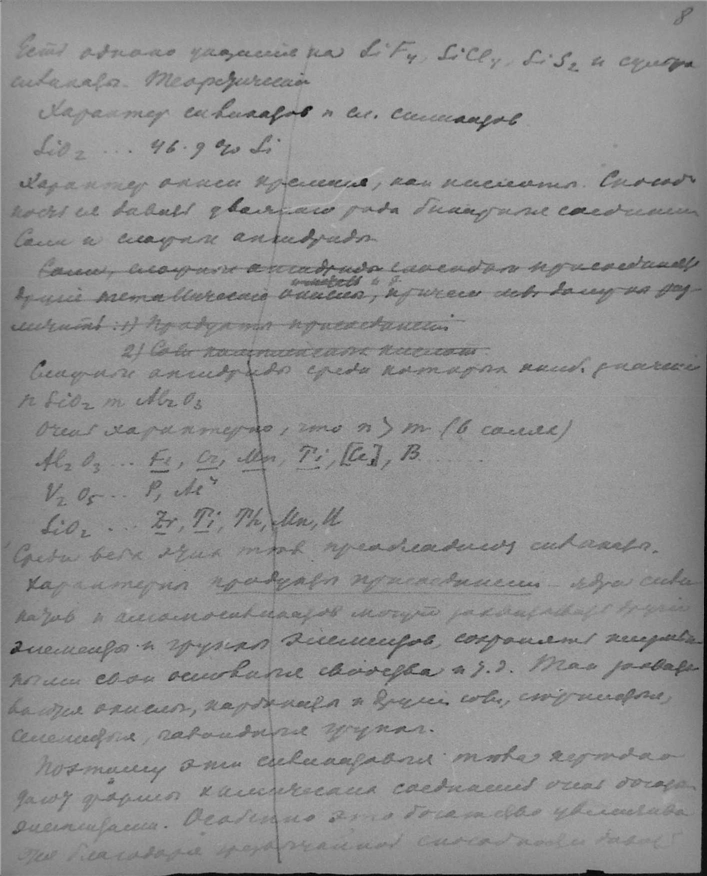 8
Есть однако указания на SiF4, SiCl4, SiS2 и сульфо
силикаты. Теоретически
Характер силикатов и сл. силикатов
SiO2 ... 46.9% Si
Характер окиси кремния, как кислоты. Способ
ность ея давать двоякаго рода бинарные соединения
Соли и сложные ангидриды
Соли, сложные ангидриды способны присоединять
другие металлические окислы, причем мы должны раз
личать: 1) Продукты присоединения
2) Соли комплексных кислот.
Сложные ангидриды среди которых наиб. значение
n SiO2 m Al2O3
Очень характерно, что n > m (в солях)
Al2O3 ... Fe, Cr, Mn, Ti, [Ce], B ......
V2O5 ... P, As
SiO2 ... Zr, Ti, Th, Mn, U
Среди всех этих тел преобладают силикаты.
Характерны продукты присоединения – ядра сили
катов и алюмосиликатов могут захватывать другие
элементы и группы элементов, сохраняя неизмен
ными свои основные свойства и т.д. Так захваты
ваются окислы, карбонаты и другие
группы.
Поэтому эти силикатовые тела нередко
дают формы химических соединений очень богатые
элементами. Особенно это богатство увеличива
ется благодаря чрезвычайной способности давать